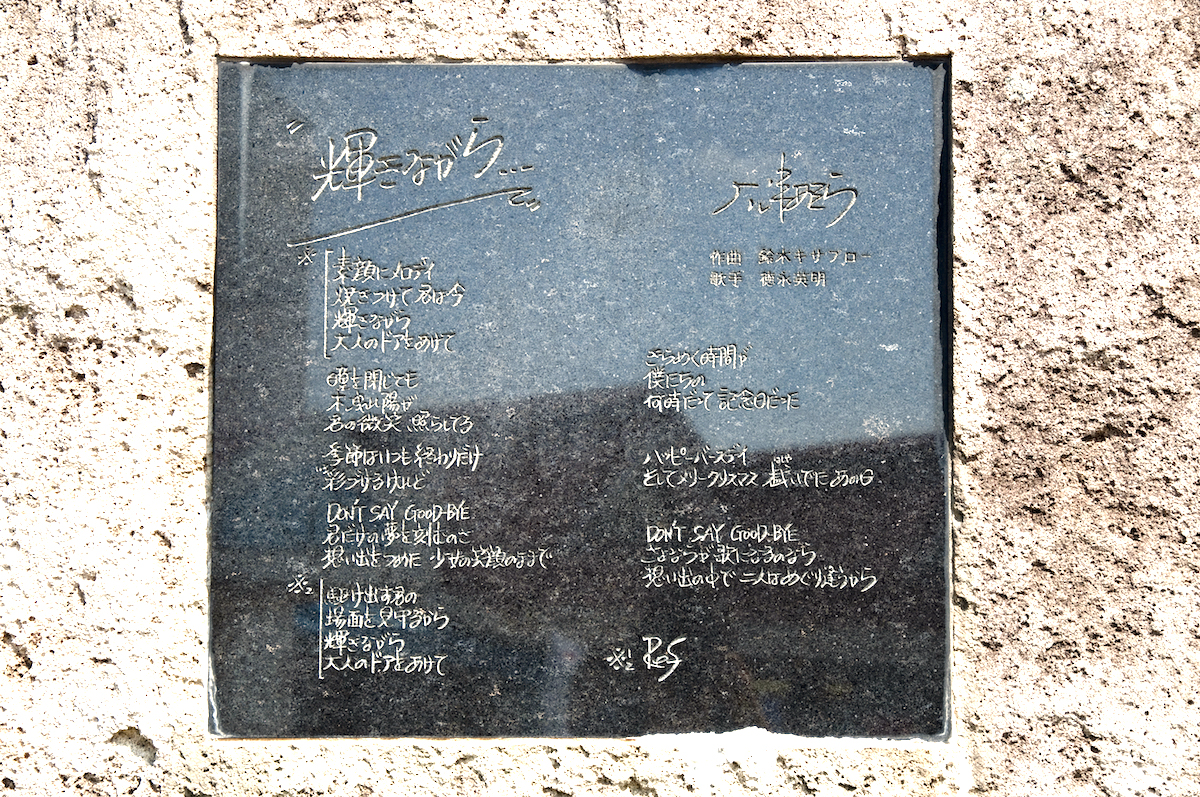 "輝きながら…"
大津あきら
作曲 鈴木キサブロー
歌手 徳永英明
※ 素顔にメロディ
焼きつけて 君は今
輝きながら
大人のドアをあけて
瞳を閉じても
木曳い陽が
君の微笑 照らしてる
季節はいつも終わりだけ
彩づけるけれど
DON'T SAY GOOD-BYE
君だけの夢を刻むのさ
想い出をつめた 少女の笑顔のままで
※2 駆け出す君の
場面を見守るから
輝きながら
大人のドアをあけて
きらめく時間が
僕たちの
何時だって 記念日だった
ハッピーバースデイ
そしてメリークリスマス 戯いでた あの日
DON'T SAY GOOD-BYE
さよならが歌になるのなら
想い出の中で 二人はめぐり逢うから